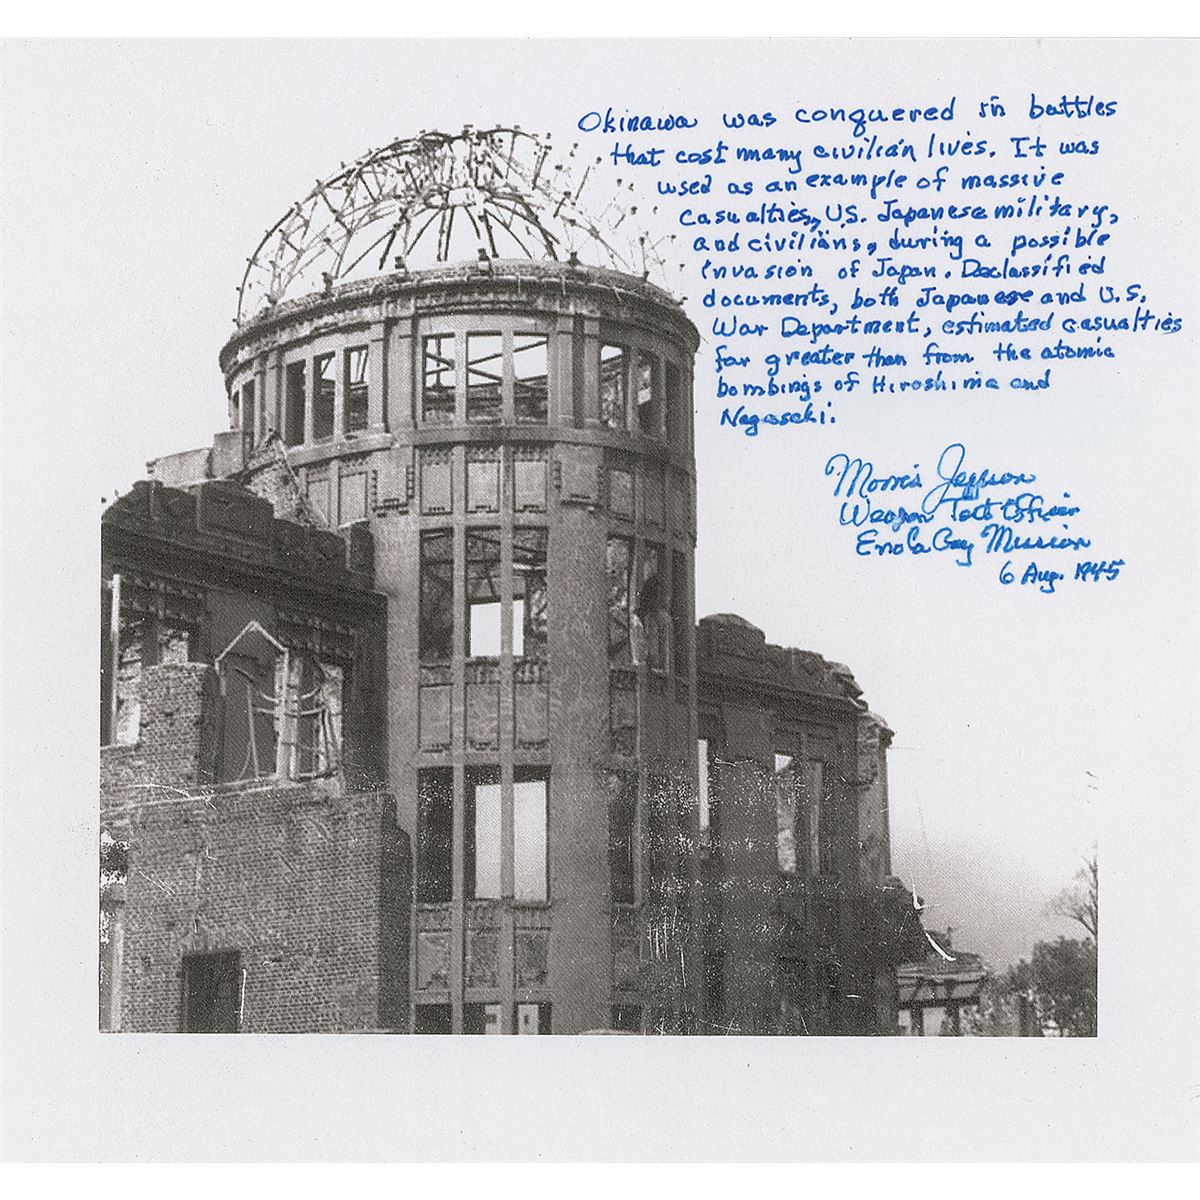 Okinawa was conquered in battles
that cost many civilian lives. It was
used as an example of massive
casualties, U.S. Japanese military,
and civilians, during a possible
invasion of Japan. Declassified
documents, both Japanese and U.S.
War Department, estimated casualties
far greater than from the atomic
bombings of Hiroshima and
Nagasaki.
Morris Jeppson
Weapon Test Officer
Enola Gay Mission
6 Aug. 1945